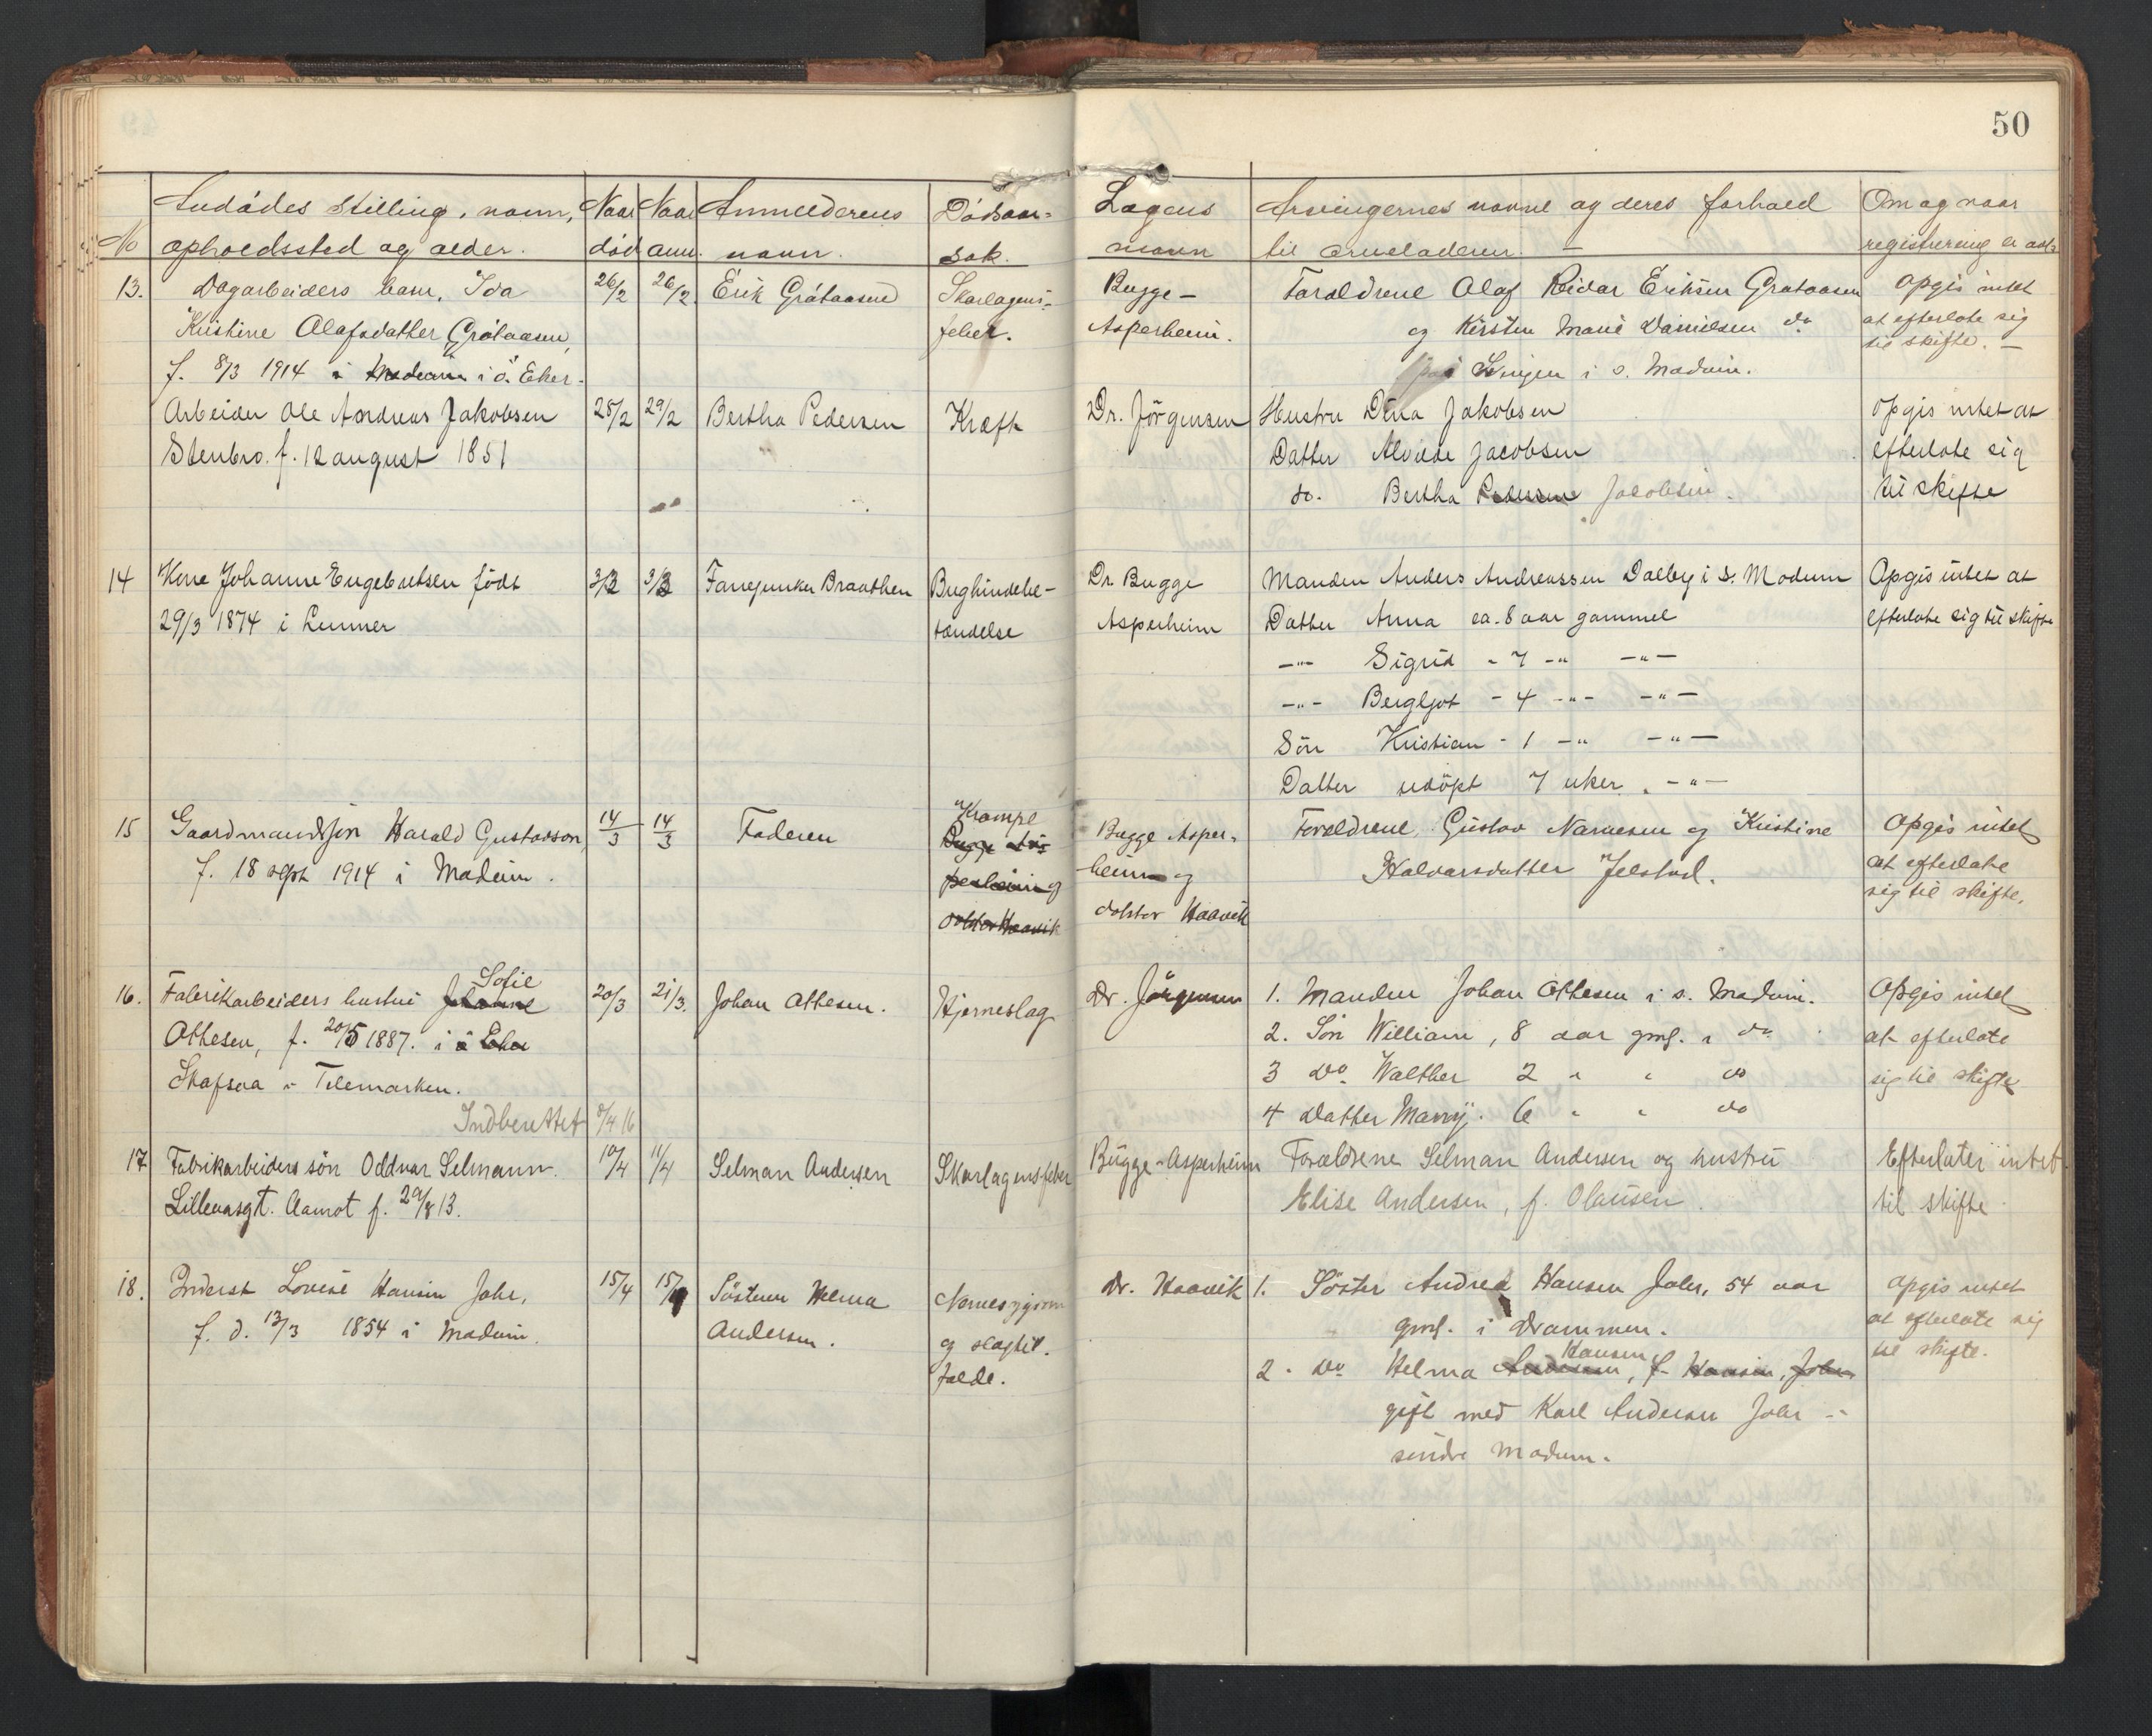 50
Avdødes stilling, navn,
No opholdssted og alder.
Naar død
Naar anm.
Anmelderens navn.
Dødsaarsak.
Lægens navn
Arvingernes navne og deres forhold
til arveladeren. —
Om og naar
registrering er avh.
13. Dagarbeiders barn, Ida
Kristine Olafsdatter Gråtaasen,
f. 8/3 1914 i Modum i ö. Eker.
26/2
26/2
Erik Gråtaasen
Skarlagens-
feber.
Bugge-
Asperheim.
Forældrene Olaf Reidar Eriksen Grataasen
og Kirsten Marie Danielsen do
i s. Modum.
Opgis intet
at efterlate sig
til skifte. —
Arbeider Ole Andreas Jakobsen
Stenbro. f. 12 august 1851
25/2
29/2
Bertha Pedersen
Kræft
Dr. Jörgensen
Hustru Dina Jakobsen
Datter Alvilde Jacobsen
do. Bertha Pedersen Jacobsen.
Opgis intet at
efterlate sig
til skifte
14 Kone Johanne Engebretsen födt
29/3 1874 i Lunner
3/3
3/3
Fanejunker Braathen
Bughindebe-
tændelse
Dr. Bugge
Asperheim
Manden Anders Andreassen Dalby i S. Modum
Datter Anna ca. 8 aar gammel
-"- Sigrid - 7 -" -"-
-"- Bergljot - 4 -"- -"-
Sön Kristian - 1 -" -"-
Datter udöpt 7 uker. -"-
Opgis intet at
efterlate sig til skifte
15 Gaardmandssøn Harald Gustavson,
f. 18 sept 1914 i Modum.
14/3
14/3
Faderen
Krampe
Bugge As-
perheim og
doktor Haavik
Bugge Asper-
heim og
doktor Haavik
Forældrene, Gustav Narvesen og Kristine
Halvorsdatter Jelstad.
Opgis intet
at efterlate
sig til skifte.
16. Fabrikarbeiders hustru Johanne Sofie
Ottesen, f. 20/5 1887. i ö Eker
Skafsaa i Telemarken.
Indberettet 8/4 16
20/3
21/3.
Johan Ottesen.
Hjerneslag
Dr. Jörgensen
1. Manden Johan Ottesen i s. Modum.
2. Sön William, 8 aar gml. i do
3 do Walther 2 " " do
4 Datter Marry. 6 " " do
Opgis intet
at efterlate
sig til skifte
17 Fabrikarbeiders sön Oddvar Selmann.
Lilleaasgt. Aamot f. 29/8 13.
10/4
11/4
Selman Andersen
Skarlagensfeber
Bugge-Asperheim
Forældrene Selman Andersen og hustru
Elise Andersen, f. Olausen.
Efterlater intet
til skifte
18. Inderst Lovise Hansen Jahr,
f. d. 13/3 1854 i Modum.
15/4
15/4
Söstern Helma
Andersen.
Nervesygdom
og slagtil.
fælde.
Dr. Haavik
1. Söster Andrea Hansen Jahr, 54 aar
gml. i Drammen.
2. do Helma Andersen, Hansen f. Hansen, Jahr
gift med Karl Andersen Jahr i
söndre Modum.
Opgis intet
at efterlate sig
til skifte.